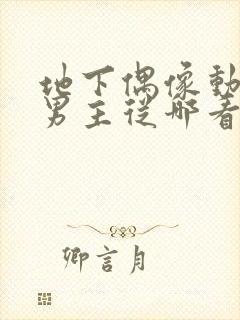 地下偶像動
男主從那看
卿言月